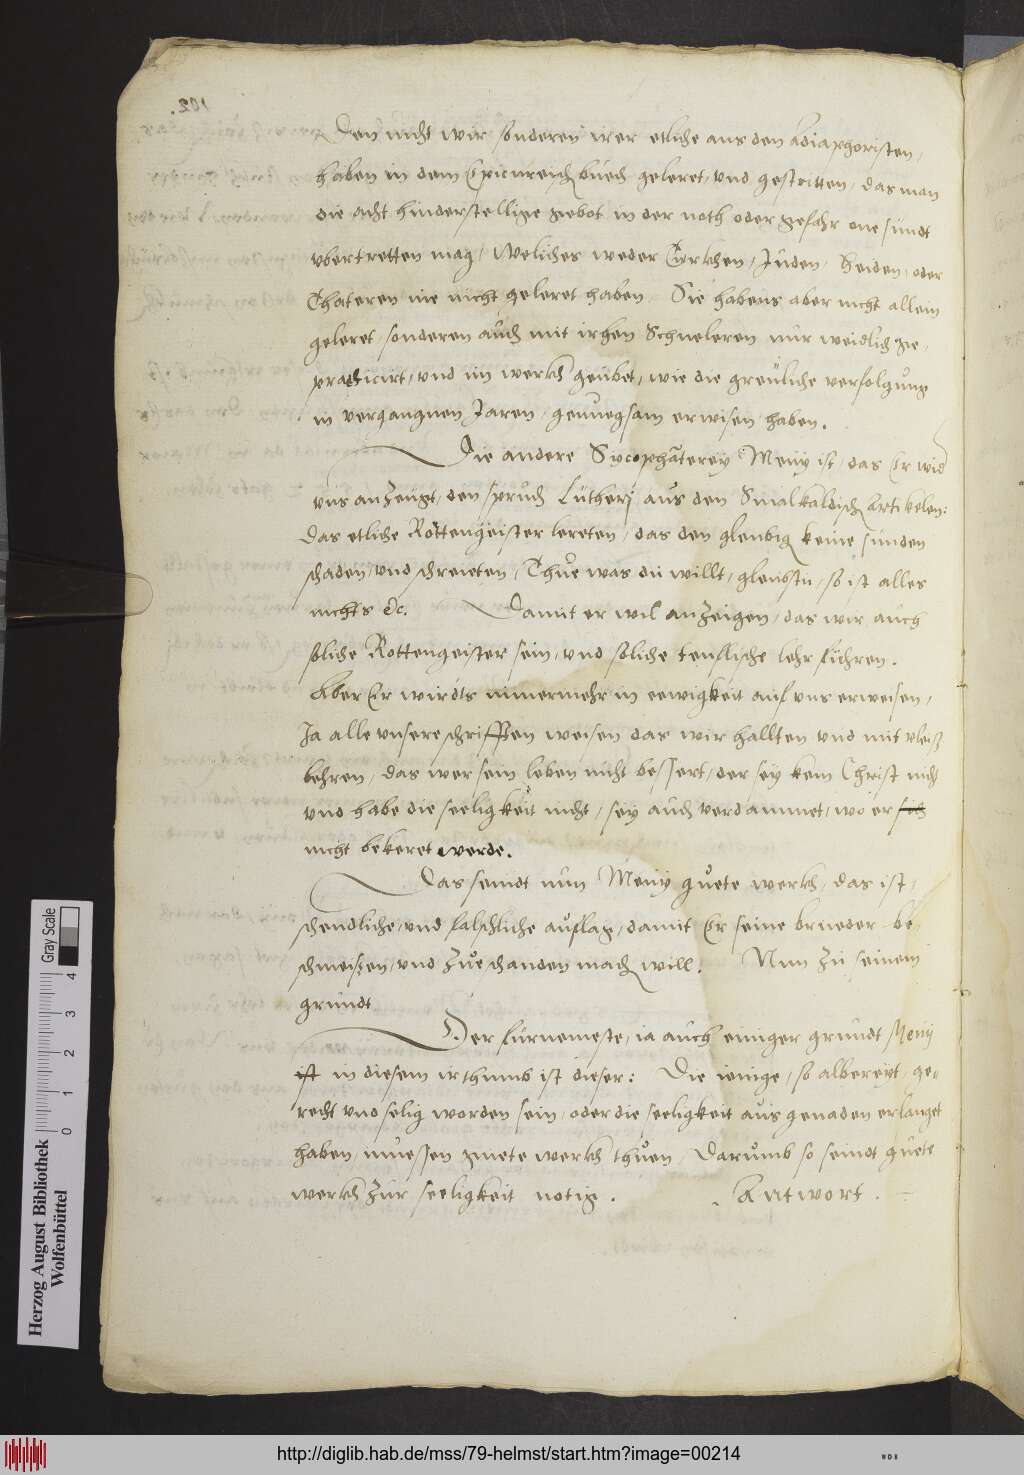 Den nicht wir sonderen irer etliche aus den Adiaphoristen,
haben in dem Epicureisch buech geleret, und gestritten, das man
die acht hinderstellige gebot in der noth oder gefahr one sündt
ubertretten mag, Weliches weder Türkhen, Juden, Heiden, oder
Thateren nie nicht geleret haben, Sie habens aber nicht allein
geleret, sonderen auch mit irhen Schueleren nur weidlich ge,
practicirt, und im werkh geübet, wie die greüliche verfolgung
in vergangnen Jaren, genuegsam erwisen haben.
Die andere Sycophãterey Menij ist, das Er wid
uns anzeügt, den spruch Lutherj aus den Smalkaldisch Artikelen:
Das etliche Rottengeister lereten, das den gleubig keine sünden
schaden, und schreieten, Thue was du willt, gleubstu, so ist alles
nichts etc. Damit er wil anzeigen, das wir auch
soliche Rottengeister sein, und soliche teuflische lehr führen.
Aber Er wirdts nimermehr in eewigkeit auf uns erweisen,
Ja alle unsere schrifften weisen das wir hallten und mit vleiß
lehren, das wer sein leben nicht bessert, der sey kein Christ nicht
und habe die seeligkeit nicht, sey auch verdammet, wo er sich
nicht bekeret werde.
Das seindt nun Menij guete werkh, das ist,
schendliche, und falschliche auflag, damit Er seine brueder be,
schmeissen, und zue schanden mach will. Nun zu seinem
gründt
Der fürnemeste, ia auch einiger grundt Menij
ist in diesem irthumb ist dieser: Die ienige, so albereyt, ge,
recht und selig worden sein, oder die seeligkeit aus genaden erlanget
haben, muessen guete werkh thuen, Darumb so seindt guete
werkh zur seeligkeit notig. Antwort.
102.
Herzog August Bibliothek
Wolfenbüttel
0 1 2 3 4 Gray Scale
http://diglib.hab.de/mss/79-helmst/start.htm?image=00214